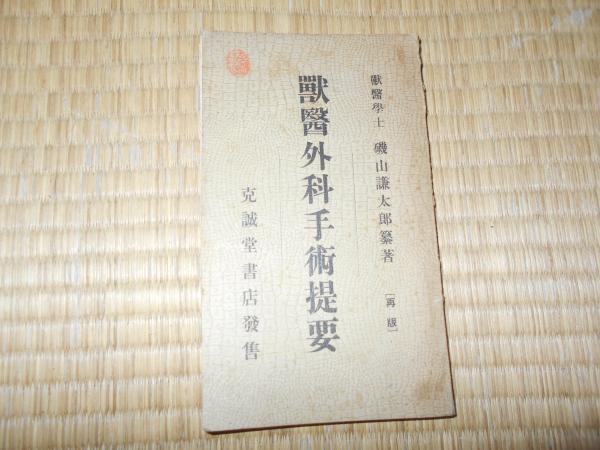 獸醫學士 磯山謙太郎纂著 [再版]
獸醫外科手術提要
克誠堂書店發售